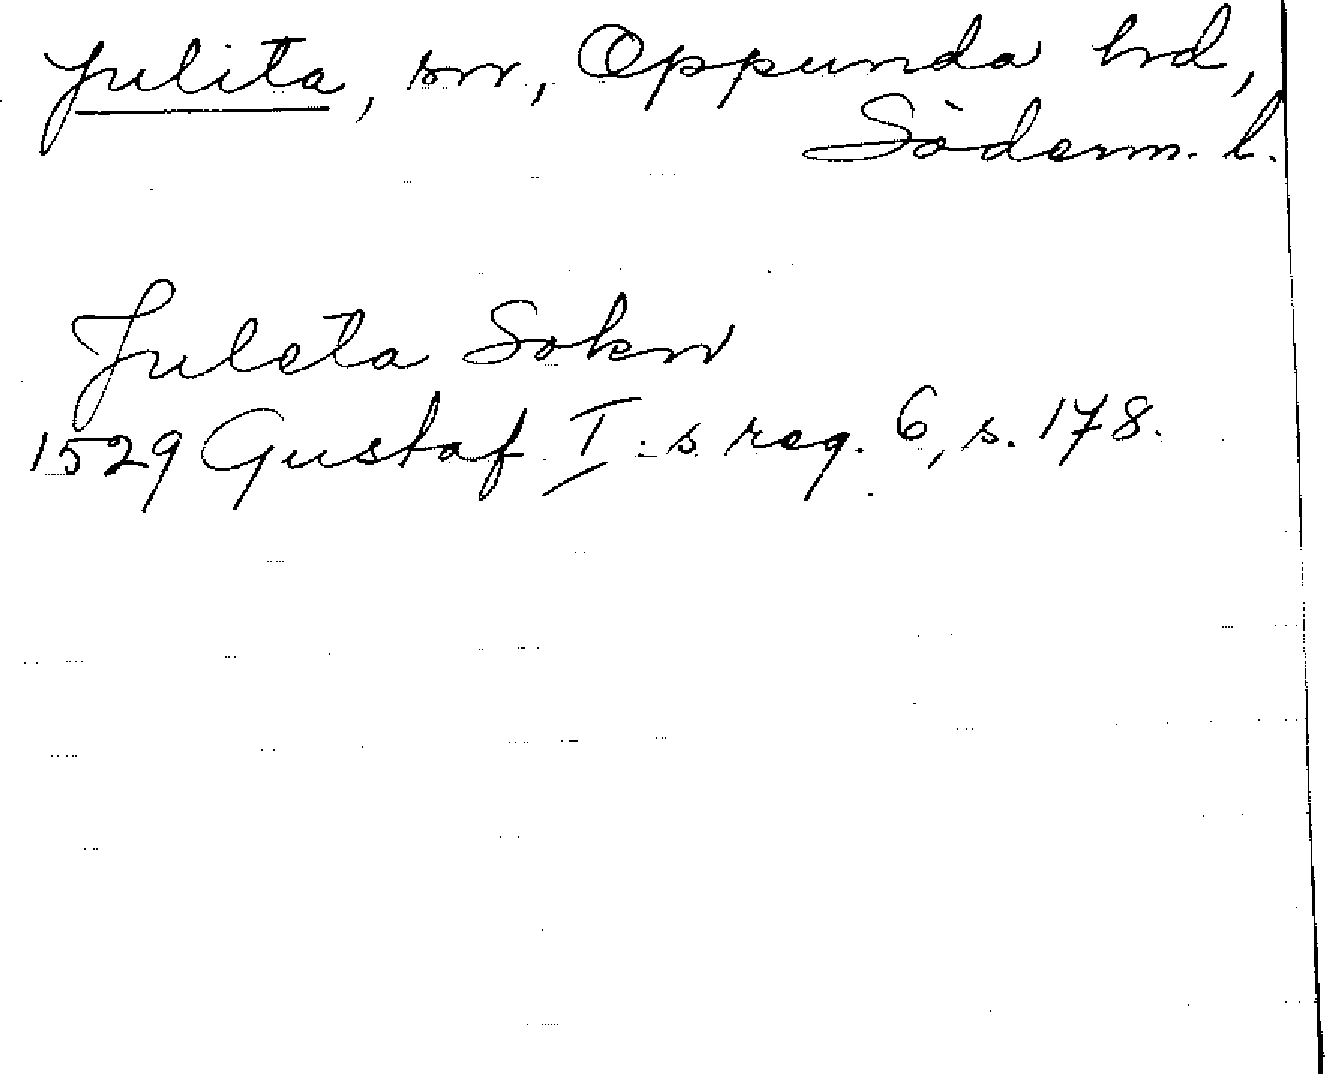 Julita, sn, Oppunda hd,
Söderm. l.
Juleta Sokn
1529 Gustaf I:s reg. 6, s. 178.